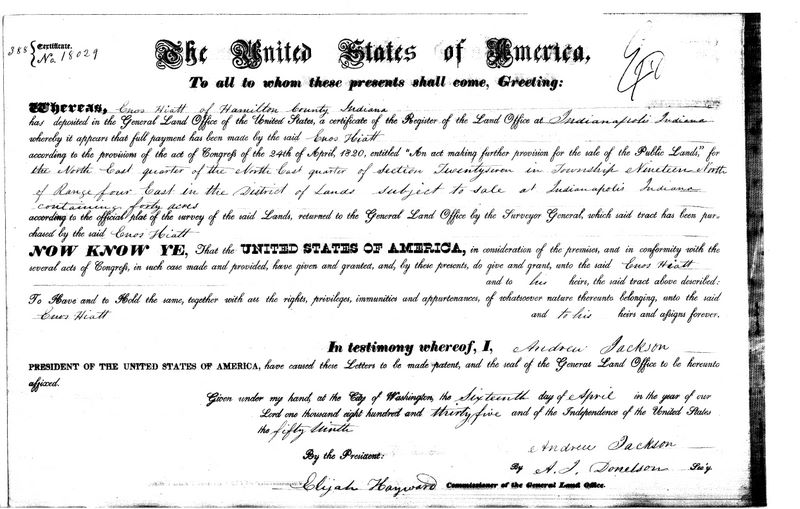 388 { Certificate.
No. 18029
The United States of America,
To all to whom these presents shall come, Greeting:
Whereas, Enos Hiatt of Hamilton County Indiana
has deposited in the General Land Office of the United States, a certificate of the Register of the Land Office at Indianapolis Indiana
whereby it appears that full payment has been made by the said Enos Hiatt
according to the provisions of the act of Congreſs of the 24th of April, 1820, entitled "An act making further provision for the sale of the Public Lands," for
the North East quarter of the North East quarter of Section Twentyseven in Township Nineteen North
of Range four East in the District of Lands subject to sale at Indianapolis Indiana
containing forty acres
according to the official plat of the survey of the said Lands, returned to the General Land Office by the Surveyor General, which said tract has been pur-
chased by the said Enos Hiatt
NOW KNOW YE, That the UNITED STATES OF AMERICA, in consideration of the premises, and in conformity with the
several acts of Congreſs, in such case made and provided, have given and granted, and, by these presents, do give and grant, unto the said Enos Hiatt
and to his heirs, the said tract above described:
To Have and to Hold the same, together with all the rights, privileges, immunities and appurtenances, of whatsoever nature thereunto belonging, unto the said
Enos Hiatt and to his heirs and aſsigns forever.
In testimony whereof, I, Andrew Jackson
PRESIDENT OF THE UNITED STATES OF AMERICA, have caused these Letters to be made patent, and the seal of the General Land Office to be hereunto
affixed.
Given under my hand, at the City of Washington, the Sixteenth day of April in the year of our
Lord one thousand eight hundred and thirty five and of the Independence of the United States
the fifty ninth
By the President: Andrew Jackson
By A. J. Donelson Sec'y.
Elijah Hayward Commissioner of the General Land Office.